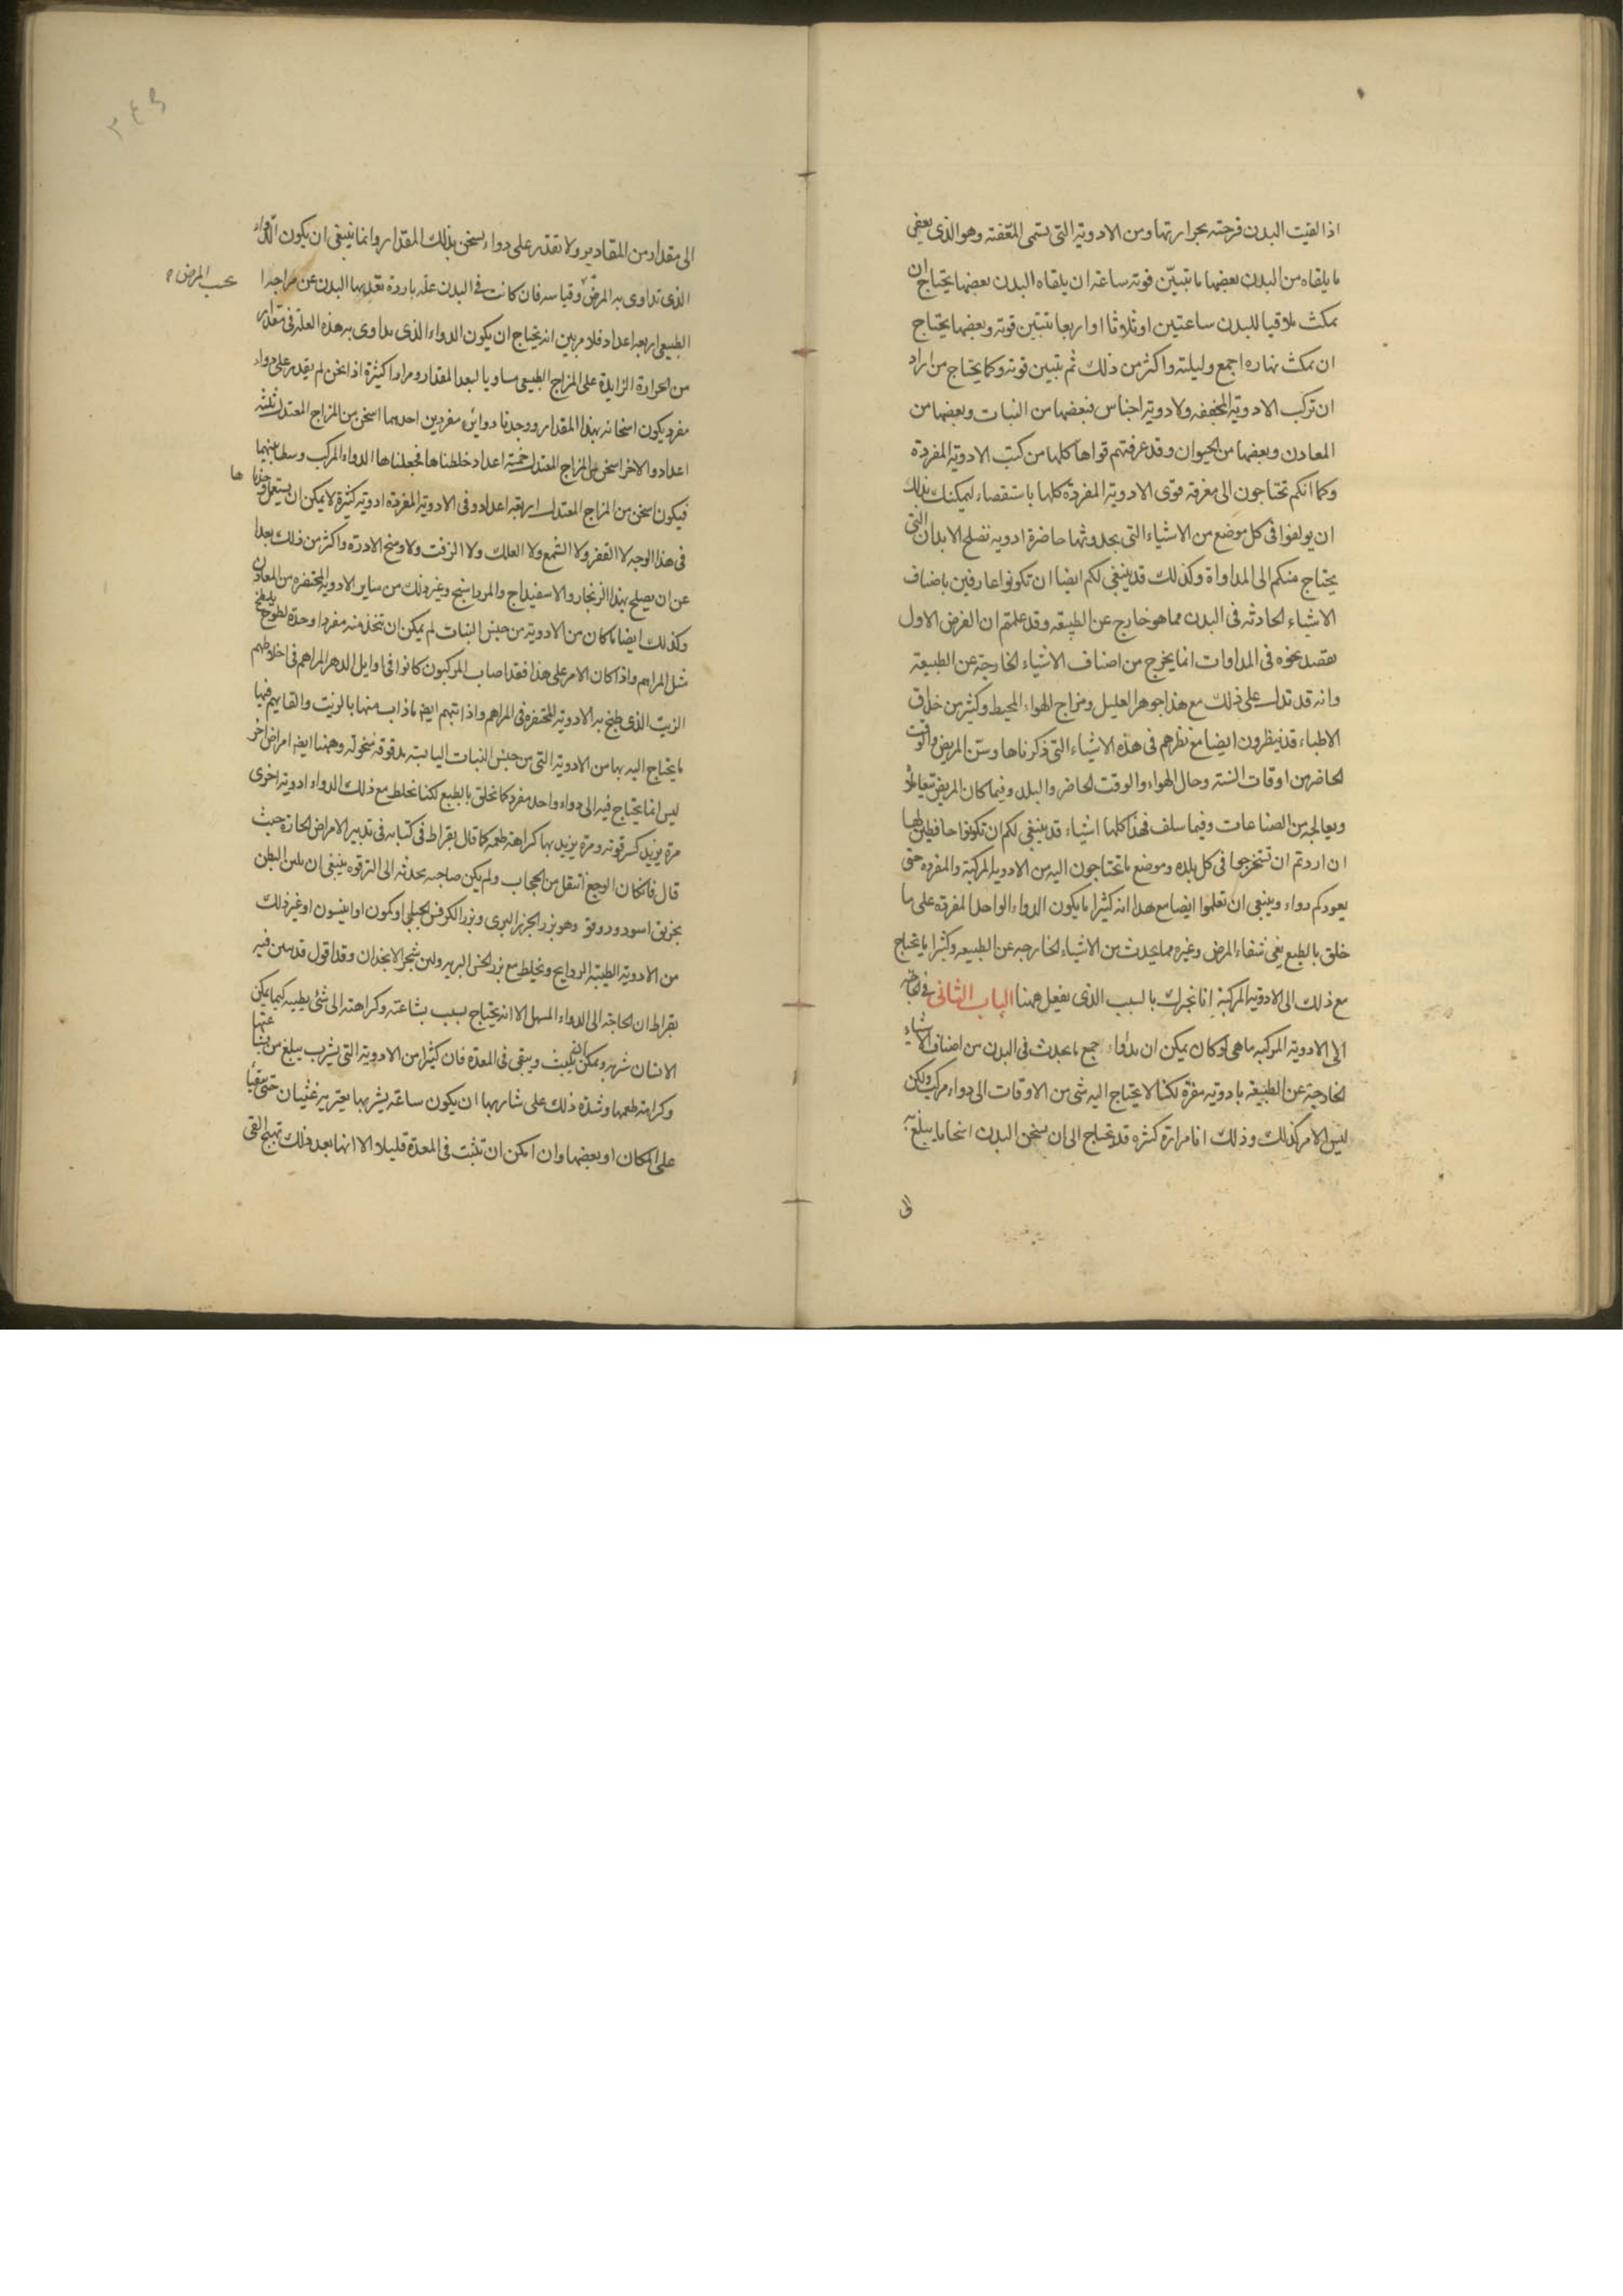 اذا لقيت البدن قرحته بحرارتها ومن الادوية التى تسمى المعفنة وهو الذى يعفن
ما يلقاه من البدن بعضها ما تتبين قوته ساعة ان يلقاه البدن بعضها يحتاج ان
يمكث ملاقيا للبدن ساعتين او ثلاثا او اربعا تتبين قوته وبعضها يحتاج
ان يمكث نهاره اجمع وليلته واكثر من ذلك ثم تتبين قوته وكما يحتاج من اراد
ان تركب الادوية المجففه ولادوية اجناس فبعضها من النبات وبعضها من
المعادن وبعضها من الحيوان وقد عرفتهم قواها كلها من كتب الادوية المفردة
وكما انكم تحتاجون الى معرفة قوى الادوية المفردة كلها باستقصاء ليمكنك بذلك
ان يولفوا فى كل موضع من الاشياء التى بحدوثها حاضرة ادويه تصلح الابدان التى
يحتاج منكم الى المداواة وكذلك قد ينبغى لكم ايضا ان تكونوا عارفين باضناف
الاشياء الحادثه فى البدن مما هو خارج عن الطبيعه وقد علمتم ان الغرض الاول
نقصد نحوه فى المداوات انما يخرج من اصناف الاشياء الخارجة عن الطبيعة
وانه قد تدل على ذلك مع هذا جوهر العليل ومزاج الهواء المحيط وكثير من حذاق
الاطباء قد ينظرون ايضا مع نظرهم فى هذه الاشياء التى ذكرناها وسن المريض والوقت
الحاضر من اوقات السنة وحال الهواء والوقت الحاضر والبلد وفيما كان المريض تعاطاه
ويعالجه من الصناعات وفيما سلف فهذا كلها اشياء قد ينبغى لكم ان تكونوا حافظين لها
ان اردتم ان تستخرجوا فى كل بلده وموضع ما تحتاجون اليه من الادوية المركبة والمفرده حتى
يعودكم دواء وينبغى ان تعلموا ايضا مع هذا انه كثيرا ما يكون الدواء الواحد المفرده على ما
خلق بالطبع يفى بشفاء المرض وغيره مما يحدث من الاشياء الخارجه عن الطبيعه وكثيرا ما يحتاج
مع ذلك الى الادوية المركبة انا نخبرك بالسبب الذى يفعل ههنا الباب الثانى فى الحاجة
الى الادوية المركبه ماهى لو كان يمكن ان يداواء جمع ما يحدث فى البدن من اصناف الاشياء
الخارجة عن الطبيعه بادوية مفردة لكنا لا يحتاج اليه شى من الاوقات الى دواء مركب ولكن
ليس الامر كذلك وذلك انا مرارة كثره قد يحتاج الى ان يسخن البدن اسخاما يبلغ به
الى
٣٤٣
الى مقدار من المقادير ولا نقدر على دواء يسخن بذلك المقدار وانما ينبغى ان يكون الدواء
الذى تداوى به المرض وقياسه فان كانت فى البدن علة باردة تعد بها البدن عن مزاجه ا
بحسب المرض ه
الطبيعى اربعه اعداد فلامر بين انه يحتاج ان يكون الدواء الذى يداوى به هذه العلة فى مقداره
من الحرارة الزايدة على المزاج الطبيعى مساويا لبعد المقدار ومرارا كثيرة اذا نحن لم نقدر على دواء
مفرد يكون اسخانه بهذا المقدار ووجدنا دوائين مفردين احدهما اسخن من المزاج المعتدل ثلثه
اعداد والاخر اسخن من المزاج المعتدل خمسة اعداد خلطناها فجعلناها الدواء المركب وسطا بينهما
فيكون اسخن من المزاج المعتدل اربعة اعداد وفى الادوية المفرده ادوية كثيرة لا يمكن ان يستعمل وحدها
فى هذا الوجه لا القفر ولا الشمع ولا العلك ولا الزفت ولا واكثر من ذلك بعدا
عن ان يصلح بهذا الزنجار والاسفيداج والمرداسنج وغير ذلك من ساير الادوية المحتفره من المعادن
وكذلك ايضا ما كان من الادوية من جنس النبات لم يمكن ان تتخذ منه مفردا وحدة لطوخ
مثل المراهم واذا كان الامر على هذا فقد اصاب المركبون كانوا فى اوايل الدهر المراهم فى اخلاطهم
الزيت الذى طبخ به الادوية المحتفره فى المراهم واذا بتهم ايضا ماذاب منها بالزيت والقايهم فيها
ما يحتاج اليه بها من الادوية التى من جنس النبات اليابسة مدقوقه منخولة وههنا ايضه امراض اخر
ليس انما يحتاج فيه الى دواء واحد مفرد كما نخلق بالطبع لكنا نخلط مع ذلك الدواء ادوية اخرى
مرة يزيد كسر قوته ومرة يزيد بها كراهة طعمه كما قال بقراط فى كتابه فى تدبير الامراض الحارة حيث
قال فان كان الوجع انتقل من الحجاب ولم يكن صاحبه يحدثه الى الترقوه ينبغى ان يلين البطن
بخربق اسود ودوقو وهو بزر الجزر البرى وبزر الكرفس الجبلى او كمون او انيسون او غير ذلك
من الادوية الطيبة الروايح ويخلط مع بزر الخس البرى ولبن شجر الانجدان وقد اقول قد بين فيه
بقراط ان الحاجه الى الدواء المسهل الا انه يحتاج بسبب بشاعته وكراهته الى شئ يطيبه كيما يمكن
الانسان شربه ويمكن ان يلبث ويبقى فى المعدة فان كثيرا من الادوية التى يشرب يبلغ من بشاعتها
وكراهة طعمها وشدة ذلك على شاربها ان يكون ساعة يشربها يعتريه غثيان حتى يتقيأ
على المكان او بعضها وان امكن ان تثبت فى المعدة قليلا الا انها بعد ذلك تهيج القى